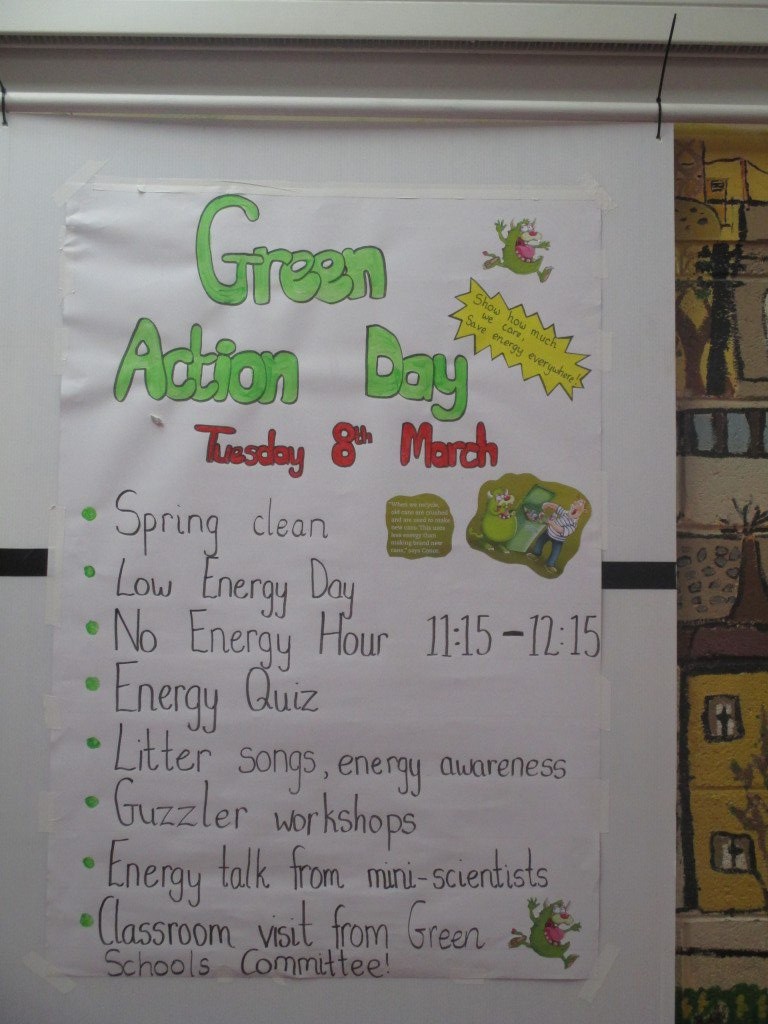 Green
Action Day
Show how much
we care,
Save energy everywhere!
Tuesday 8th March
"When we recycle,
old cans are crushed
and are used to make
new cans. This uses
less energy than
making brand new
cans," says Green.
Spring clean
Low Energy Day
No Energy Hour 11:15 – 12:15
Energy Quiz
Litter songs, energy awareness
Guzzler workshops
Energy talk from mini-scientists
Classroom visit from Green
Schools Committee!